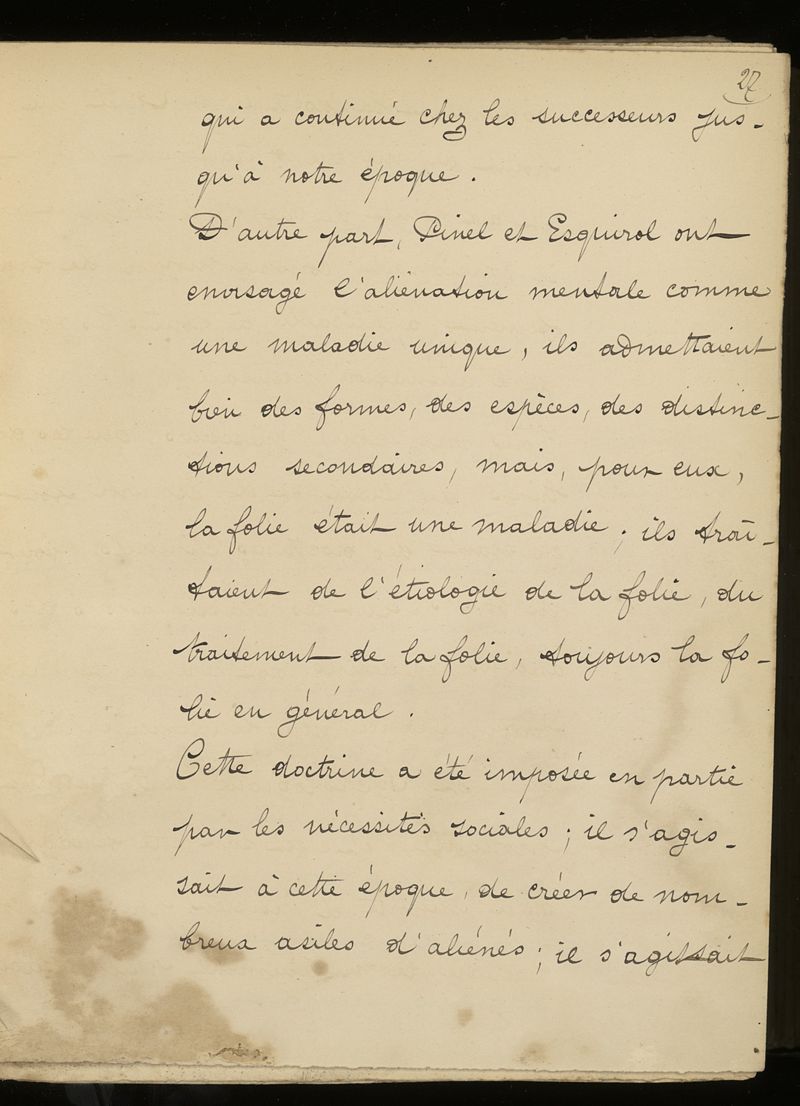 27
qui a continué chez les successeurs jus-
qu'à notre époque.
D'autre part, Pinel et Esquirol ont
envisagé l'aliénation mentale comme
une maladie unique, ils admettaient
bien des formes, des espèces, des distinc-
tions secondaires, mais, pour eux,
la folie était une maladie ; ils trai-
taient de l'étiologie de la folie, du
traitement de la folie, toujours la fo-
lie en général.
Cette doctrine a été imposée en partie
par les nécessités sociales ; il s'agis-
sait à cette époque, de créer de nom-
breux asiles d'aliénés ; il s'agissait